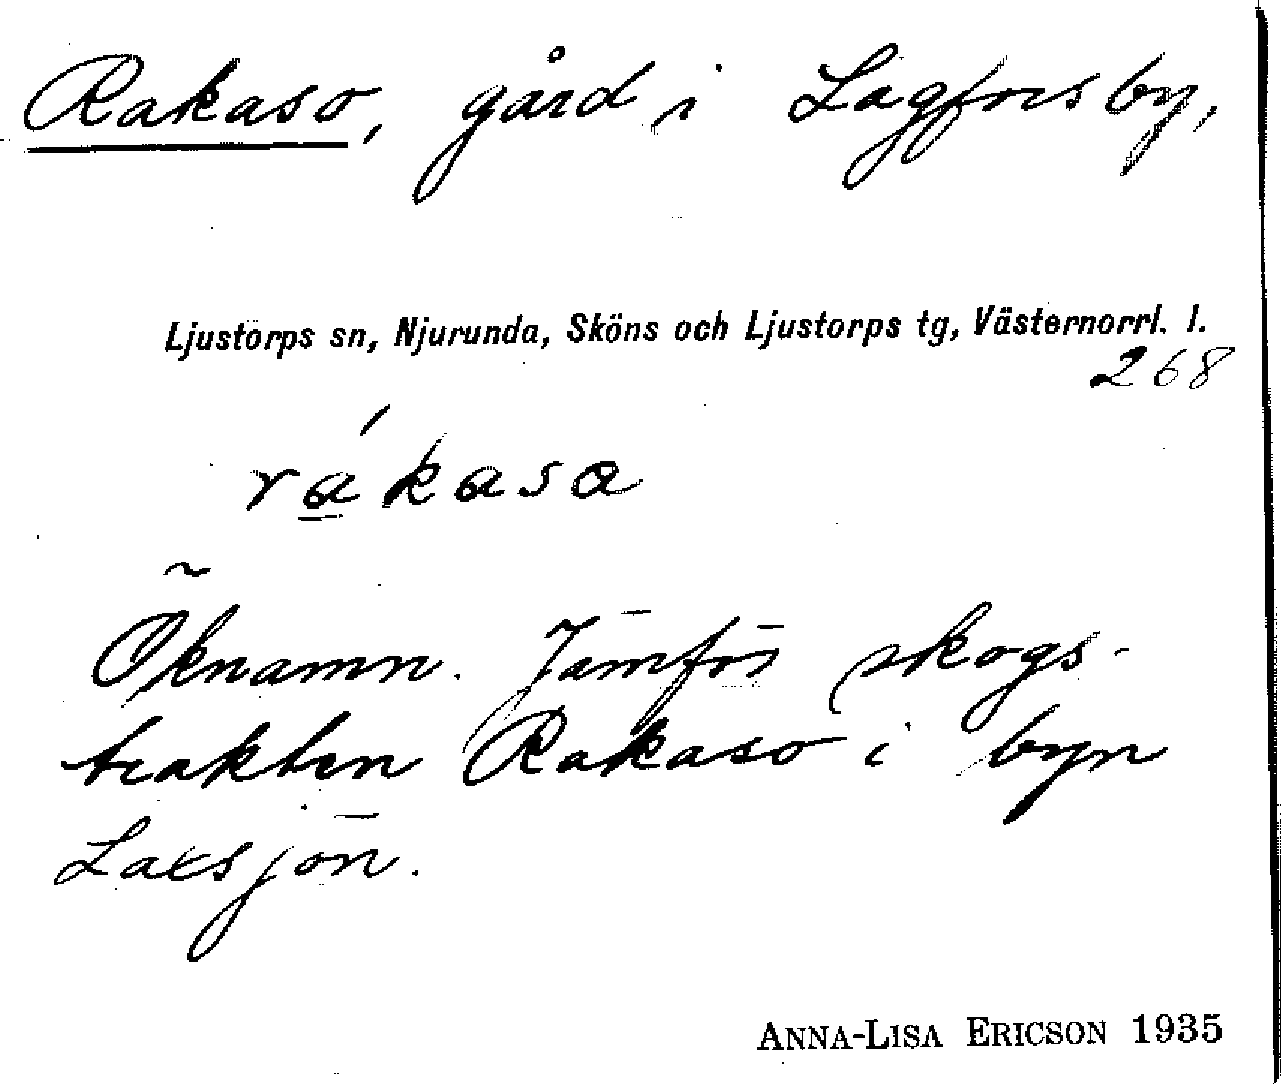 Rakaso, gård i Lagfors by,
Ljustorps sn, Njurunda, Sköns och Ljustorps tg, Västernorrl. l.
268
rákasa
Öknamn. Jämför skogs-
trakten Rakaso i byn
Laxsjön.
ANNA-LISA ERICSON 1935